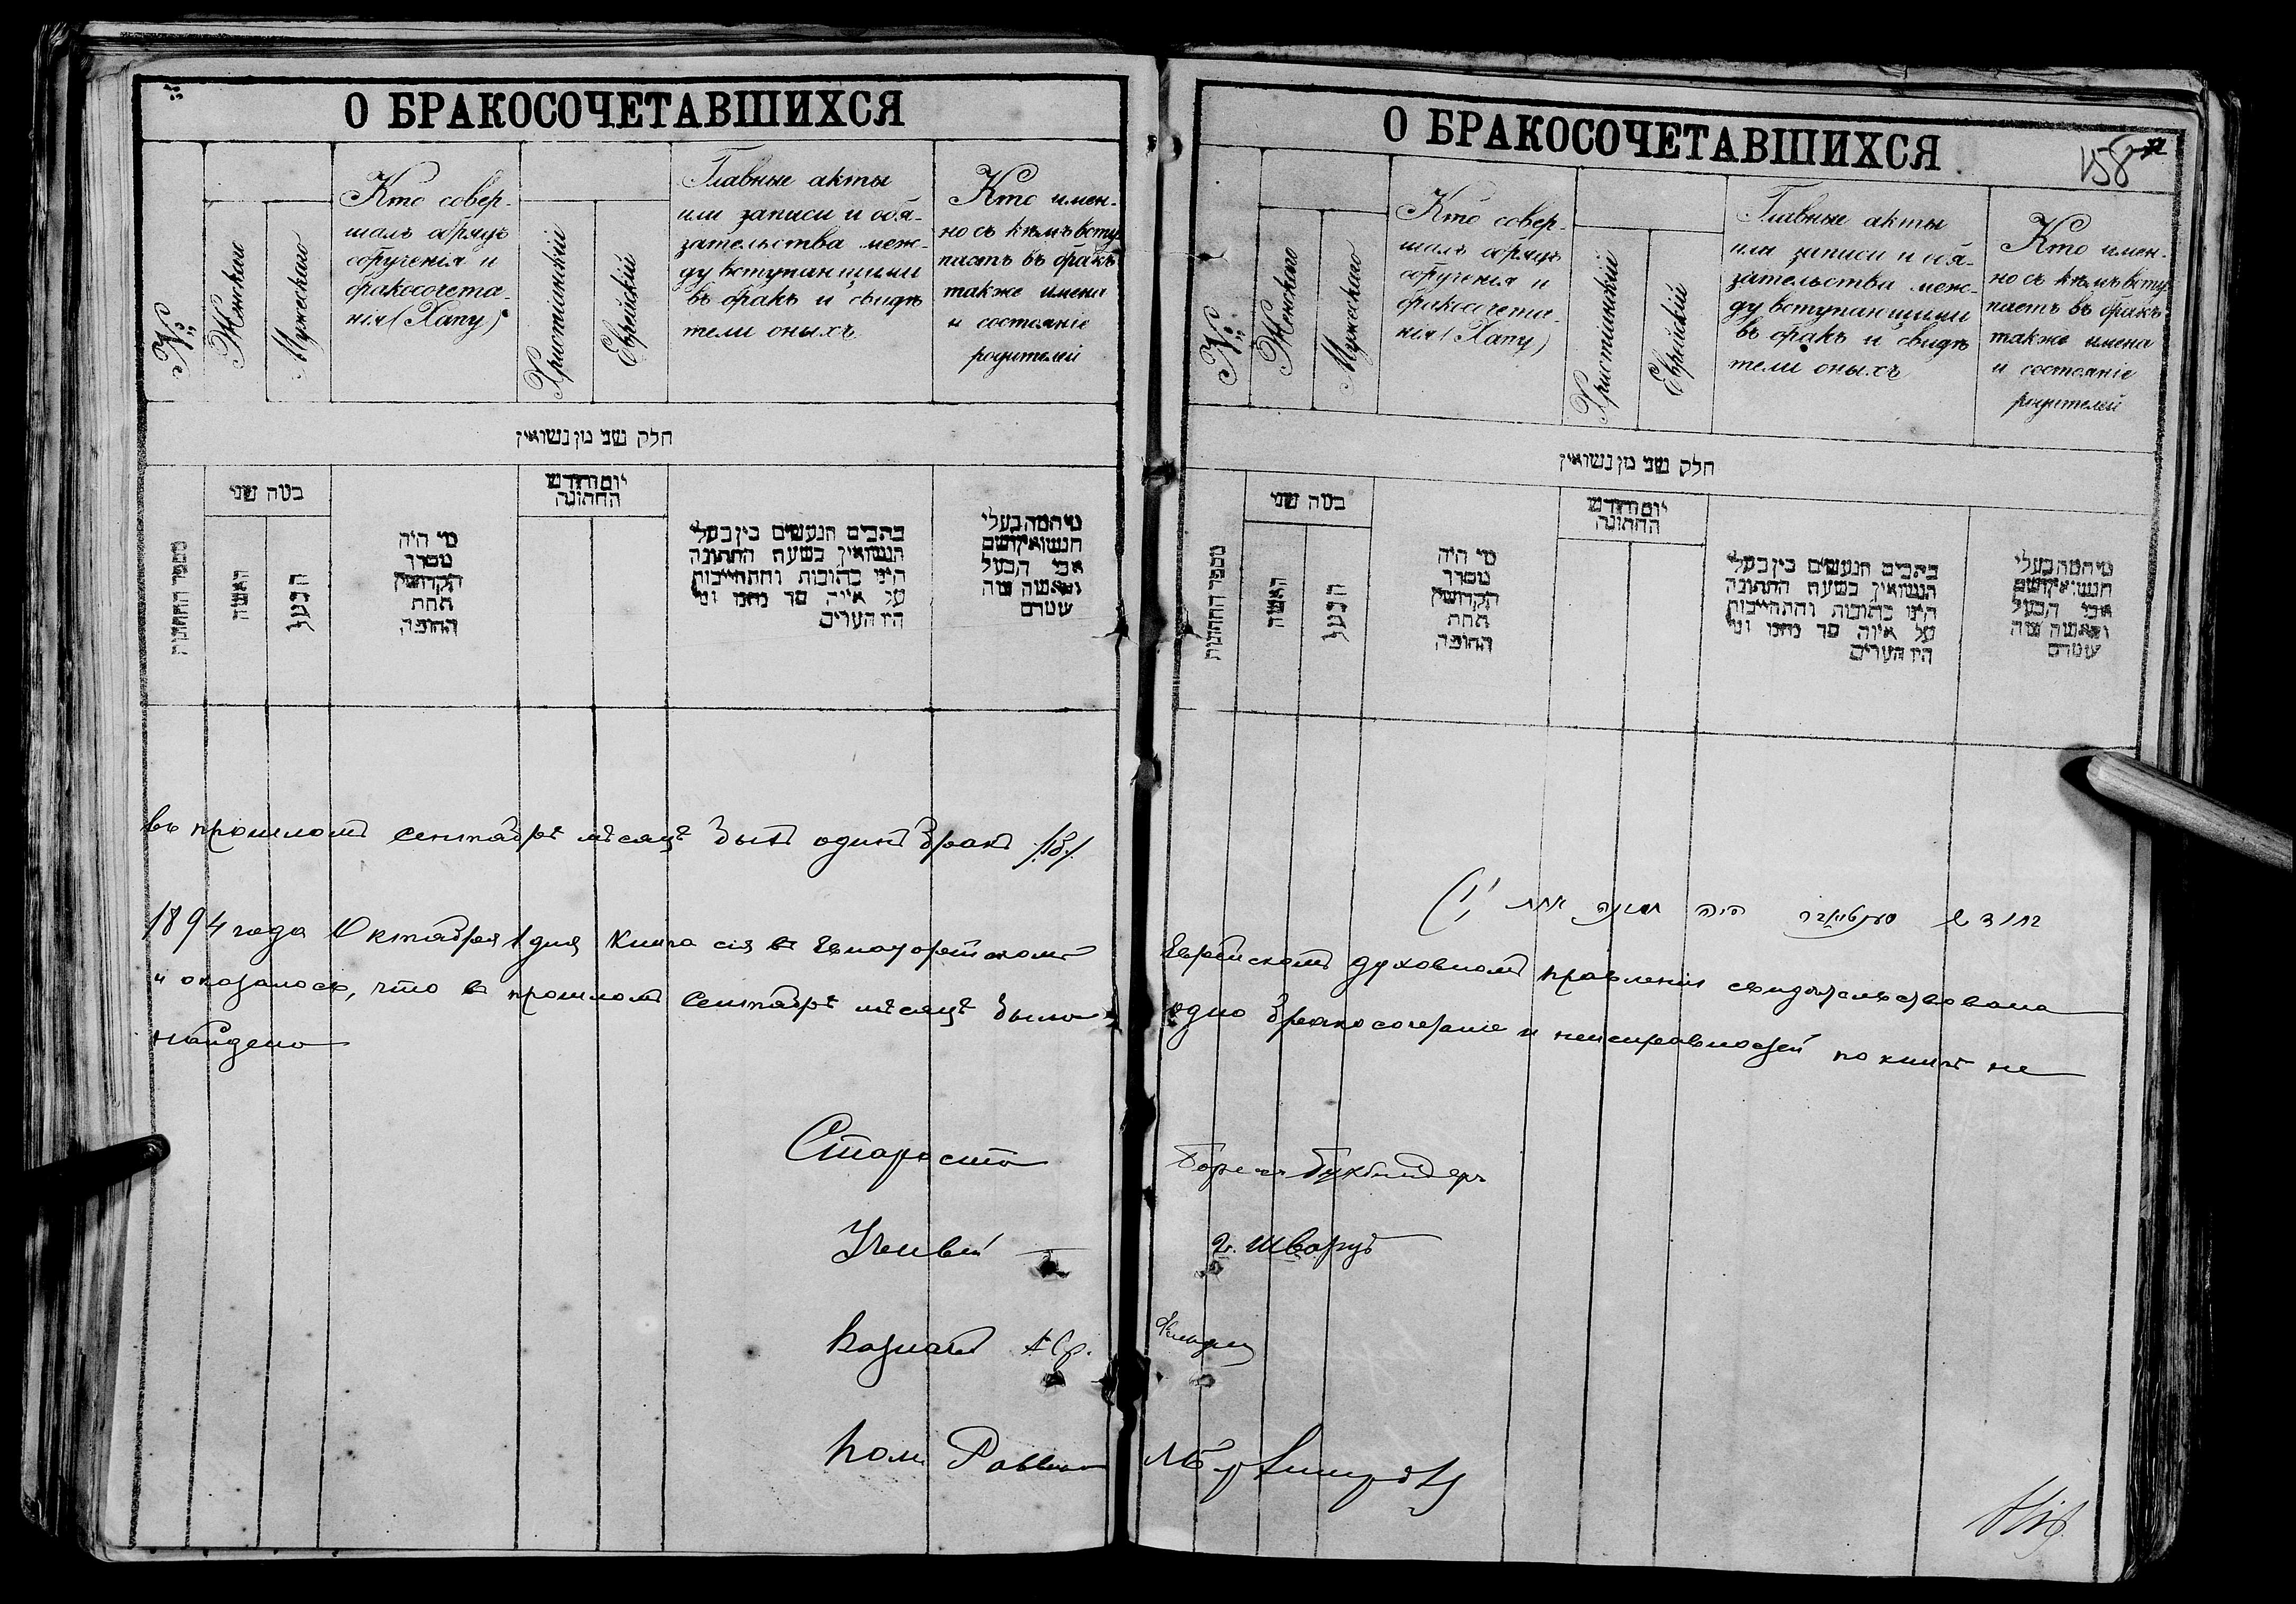 О БРАКОСОЧЕТАВШИХСЯ
№
Женскаго
Мужескаго
Кто совер-
шалъ обрядъ
обрученія и
бракосочета-
нія (Хапу)
Христіанскій
Еврейскій
Главные акты
или записи и обя-
зательства меж-
ду вступающими
въ бракъ и свидѣ
тели оныхъ
Кто имен-
но съ кѣмъ всту
паетъ въ бракъ
также имена
и состояніе
родителей
חלק שני מן נשואין
מספר החתונות
כמה שני
האשה
הבעל
מי היה
מסדר
הקדושין
תחת
החופה
יום וחדש
החתונה
כתבים הנעשים בין בעלי
הנשואין בשעת החתונה
היינו כתובות והתחייבות
על איזה סך נתנו ומי
היו העדים
מי המה בעלי
הנשואין ושם
אבי הבעל
והאשה ומה
עטרם
въ прошломъ Сентябрѣ мѣсяцѣ былъ одинъ бракъ
1894 года Октября 1 дня Книга сія въ Евпаторійскомъ
и оказалось, что въ прошломъ Сентябрѣ мѣсяцѣ было
найдено
Староста
Ученый
Казначей
Раввинъ
О БРАКОСОЧЕТАВШИХСЯ
158
№
Женскаго
Мужескаго
Кто совер-
шалъ обрядъ
обрученія и
бракосочета-
нія (Хапу)
Христіанскій
Еврейскій
Главные акты
или записи и обя-
зательства меж-
ду вступающими
въ бракъ и свидѣ
тели оныхъ
Кто имен-
но съ кѣмъ всту
паетъ въ бракъ
также имена
и состояніе
родителей
חלק שני מן נשואין
מספר החתונות
כמה שני
האשה
הבעל
מי היה
מסדר
הקדושין
תחת
החופה
יום וחדש
החתונה
כתבים הנעשים בין בעלי
הנשואין בשעת החתונה
היינו כתובות והתחייבות
על איזה סך נתנו ומי
היו העדים
מי המה בעלי
הנשואין ושם
אבי הבעל
והאשה ומה
עטרם
היה חתונה אחת
Еврейскомъ духовномъ правленіи свидѣтельствована
одно бракосочетаніе и неисправностей по книгѣ не
Бухбиндеръ
Шварцъ